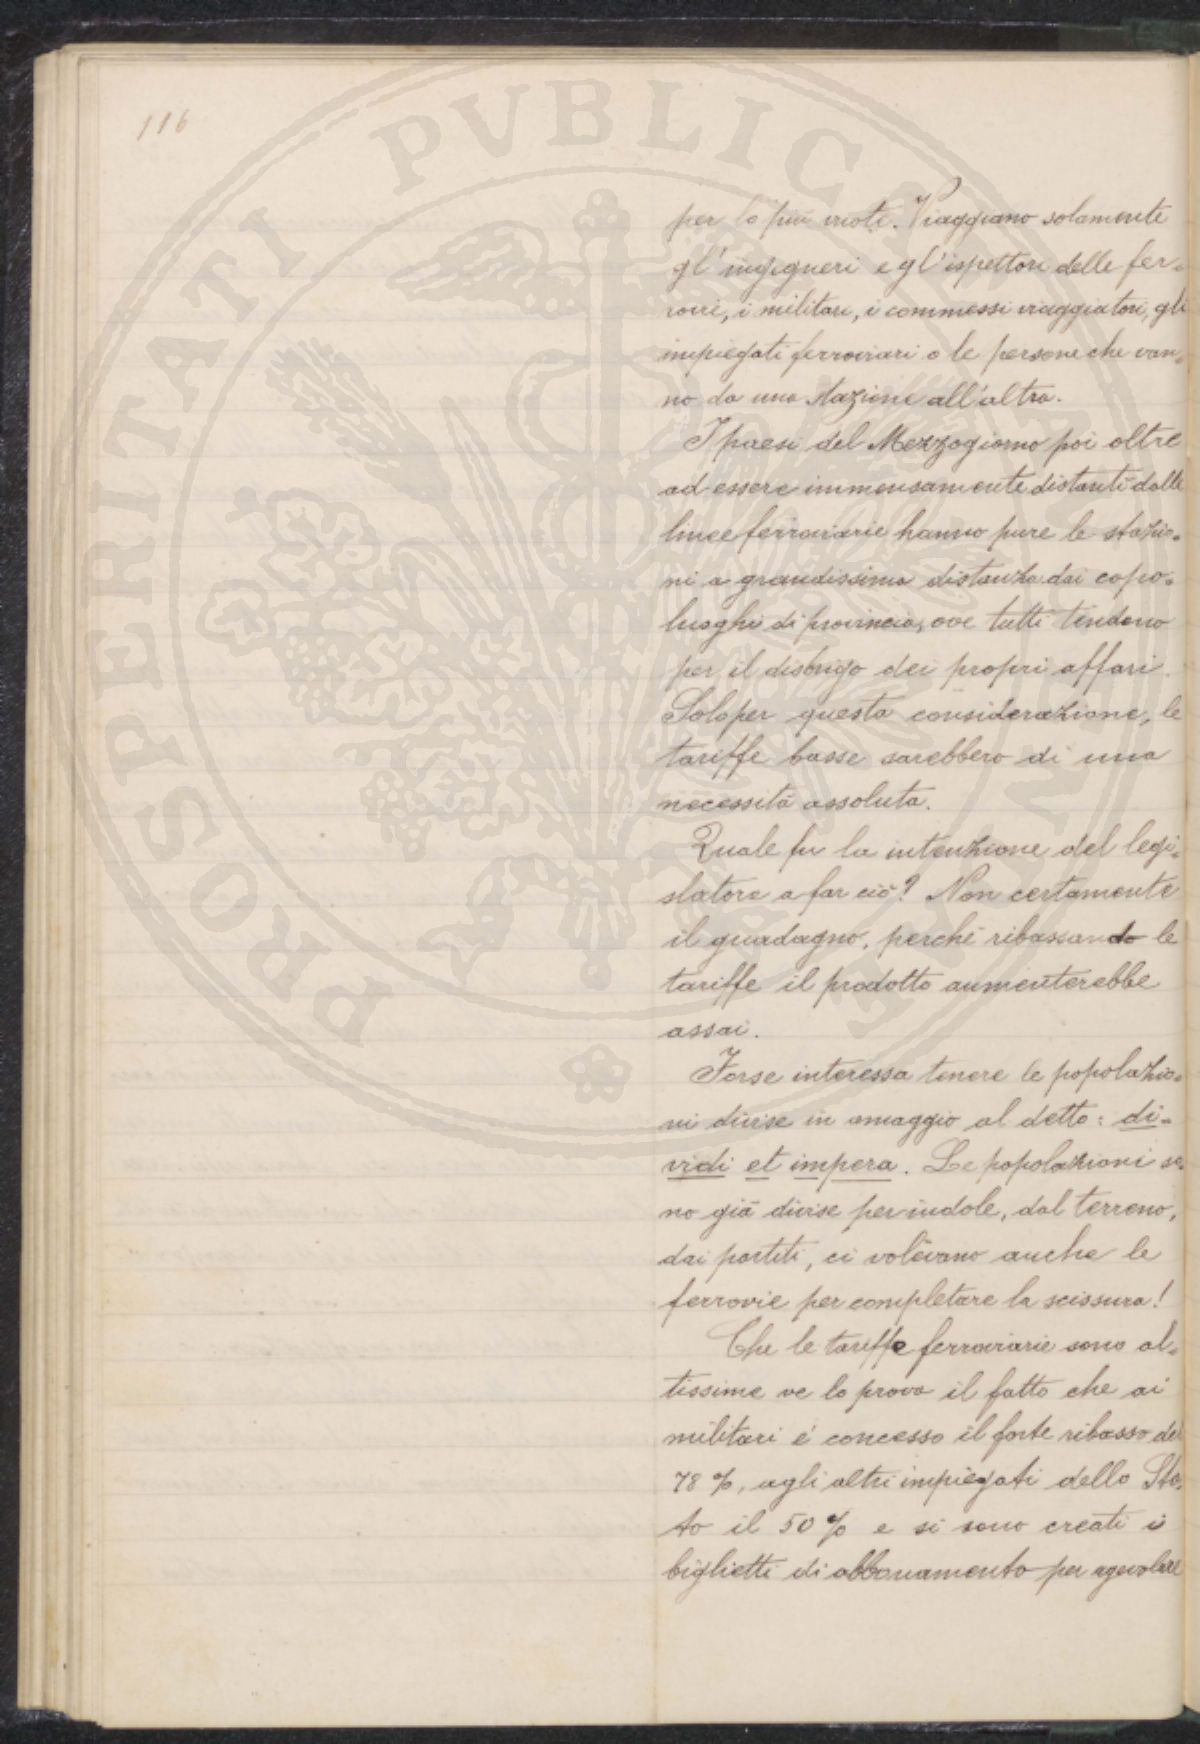 116
PROSPERITATI PUBLICAE AUGENDAE
per lo più vuoti. Viaggiano solamente
gl'ingegneri e gl'ispettori delle fer-
rovie, i militari, i commessi viaggiatori, gli
impiegati ferroviari o le persone che van-
no da una stazione all'altra.
I paesi del Mezzogiorno poi oltre
ad essere immensamente distanti dalle
linee ferroviarie hanno pure le stazio-
ni a grandissima distanza dai capo-
luoghi di provincia, ove tutti tendono
per il disbrigo dei propri affari.
Solo per questa considerazione, le
tariffe basse sarebbero di una
necessità assoluta.
Quale fu la intenzione del legi-
slatore a far ciò? Non certamente
il guadagno, perchè ribassando le
tariffe il prodotto aumenterebbe
assai.
Forse interessa tenere le popolazio-
ni divise in omaggio al detto: di-
vidi et impera. Le popolazioni so-
no già divise per indole, dal terreno,
dai partiti, ci volevano anche le
ferrovie per completare la scissura!
Che le tariffe ferroviarie sono al-
tissime ve lo prova il fatto che ai
militari è concesso il forte ribasso del
78 %, agli altri impiegati dello Sta-
to il 50 % e si sono creati i
biglietti di abbonamento per agevolare